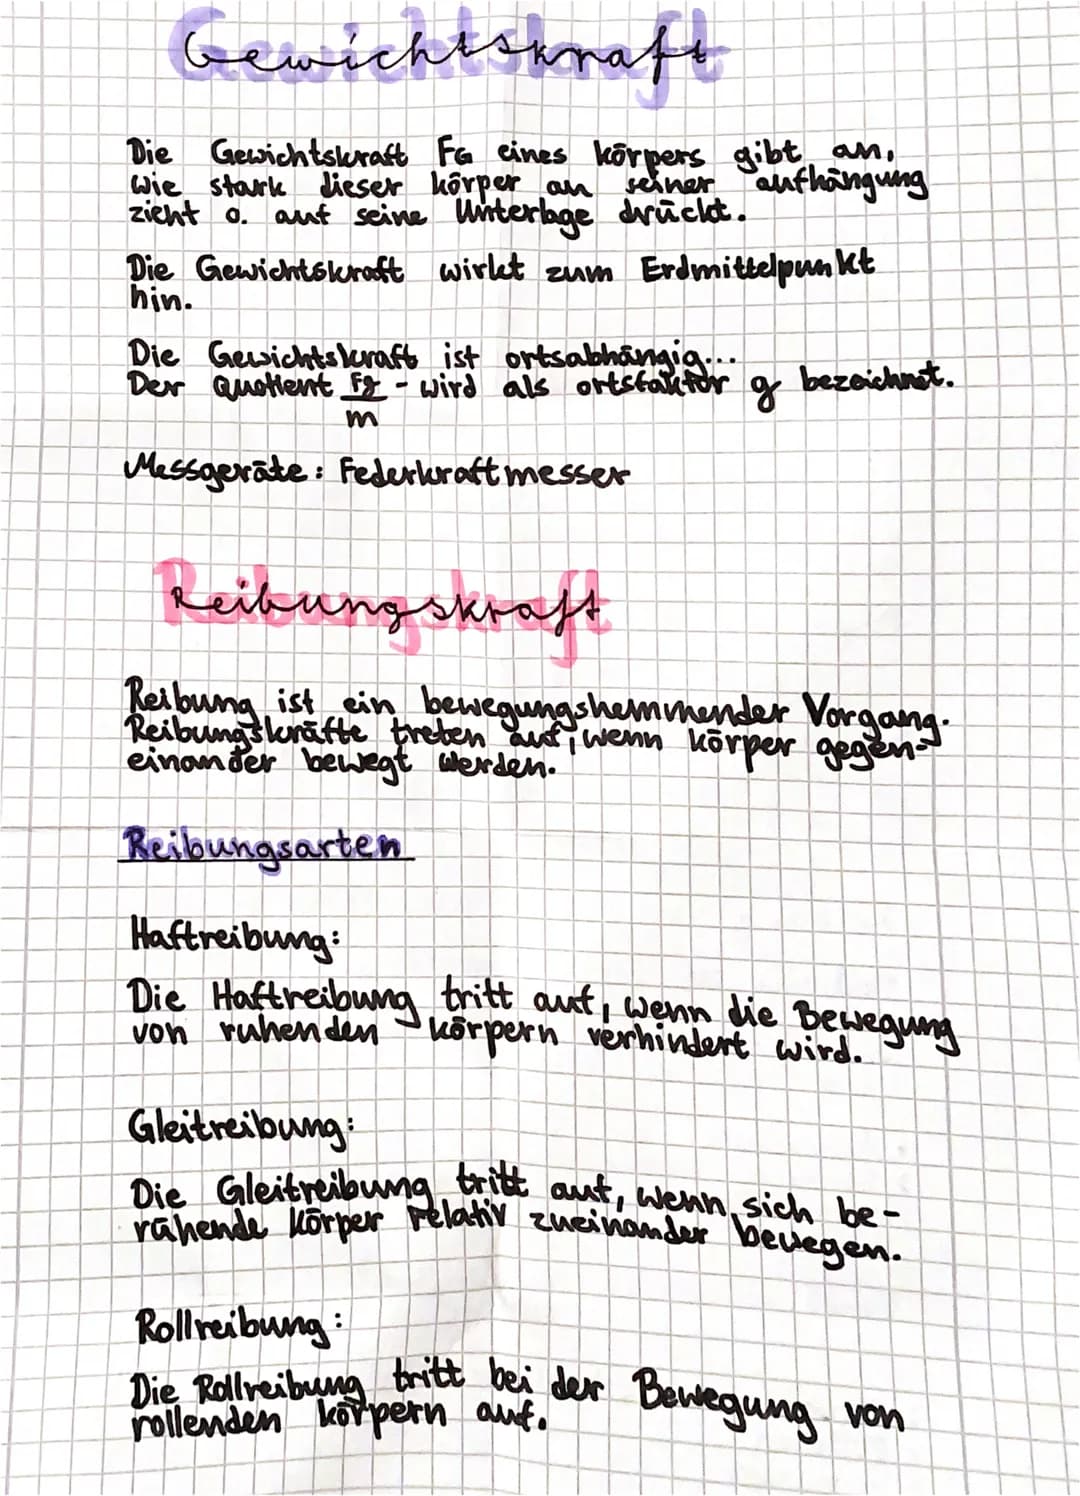 Gewichtskraft
Die Gewichtskraft FG eines körpers gibt an,
wie stark dieser körper an seiner aufhängung
zieht o. auf seine Unterlage drückt.
Die Gewichtskraft wirkt zum Erdmittelpunkt
hin.
Die Gewichtskraft ist ortsabhängig...
Der Quotient Fg - wird als ortsfaktor g bezeichnet.
m
Messgeräte: Federkraftmesser
Reibungskraft
Reibung ist ein bewegungshemmender Vorgang.
Reibungskräfte treten auf, wenn körper gegen-
einander bewegt werden.
Reibungsarten
Haftreibung:
Die Haftreibung tritt auf, wenn die Bewegung
von ruhenden körpern verhindert wird.
Gleitreibung:
Die Gleitreibung tritt auf, wenn sich be-
rühende Körper relativ zueinander bewegen.
Rollreibung:
Die Rollreibung tritt bei der Bewegung von
rollenden körpern auf.